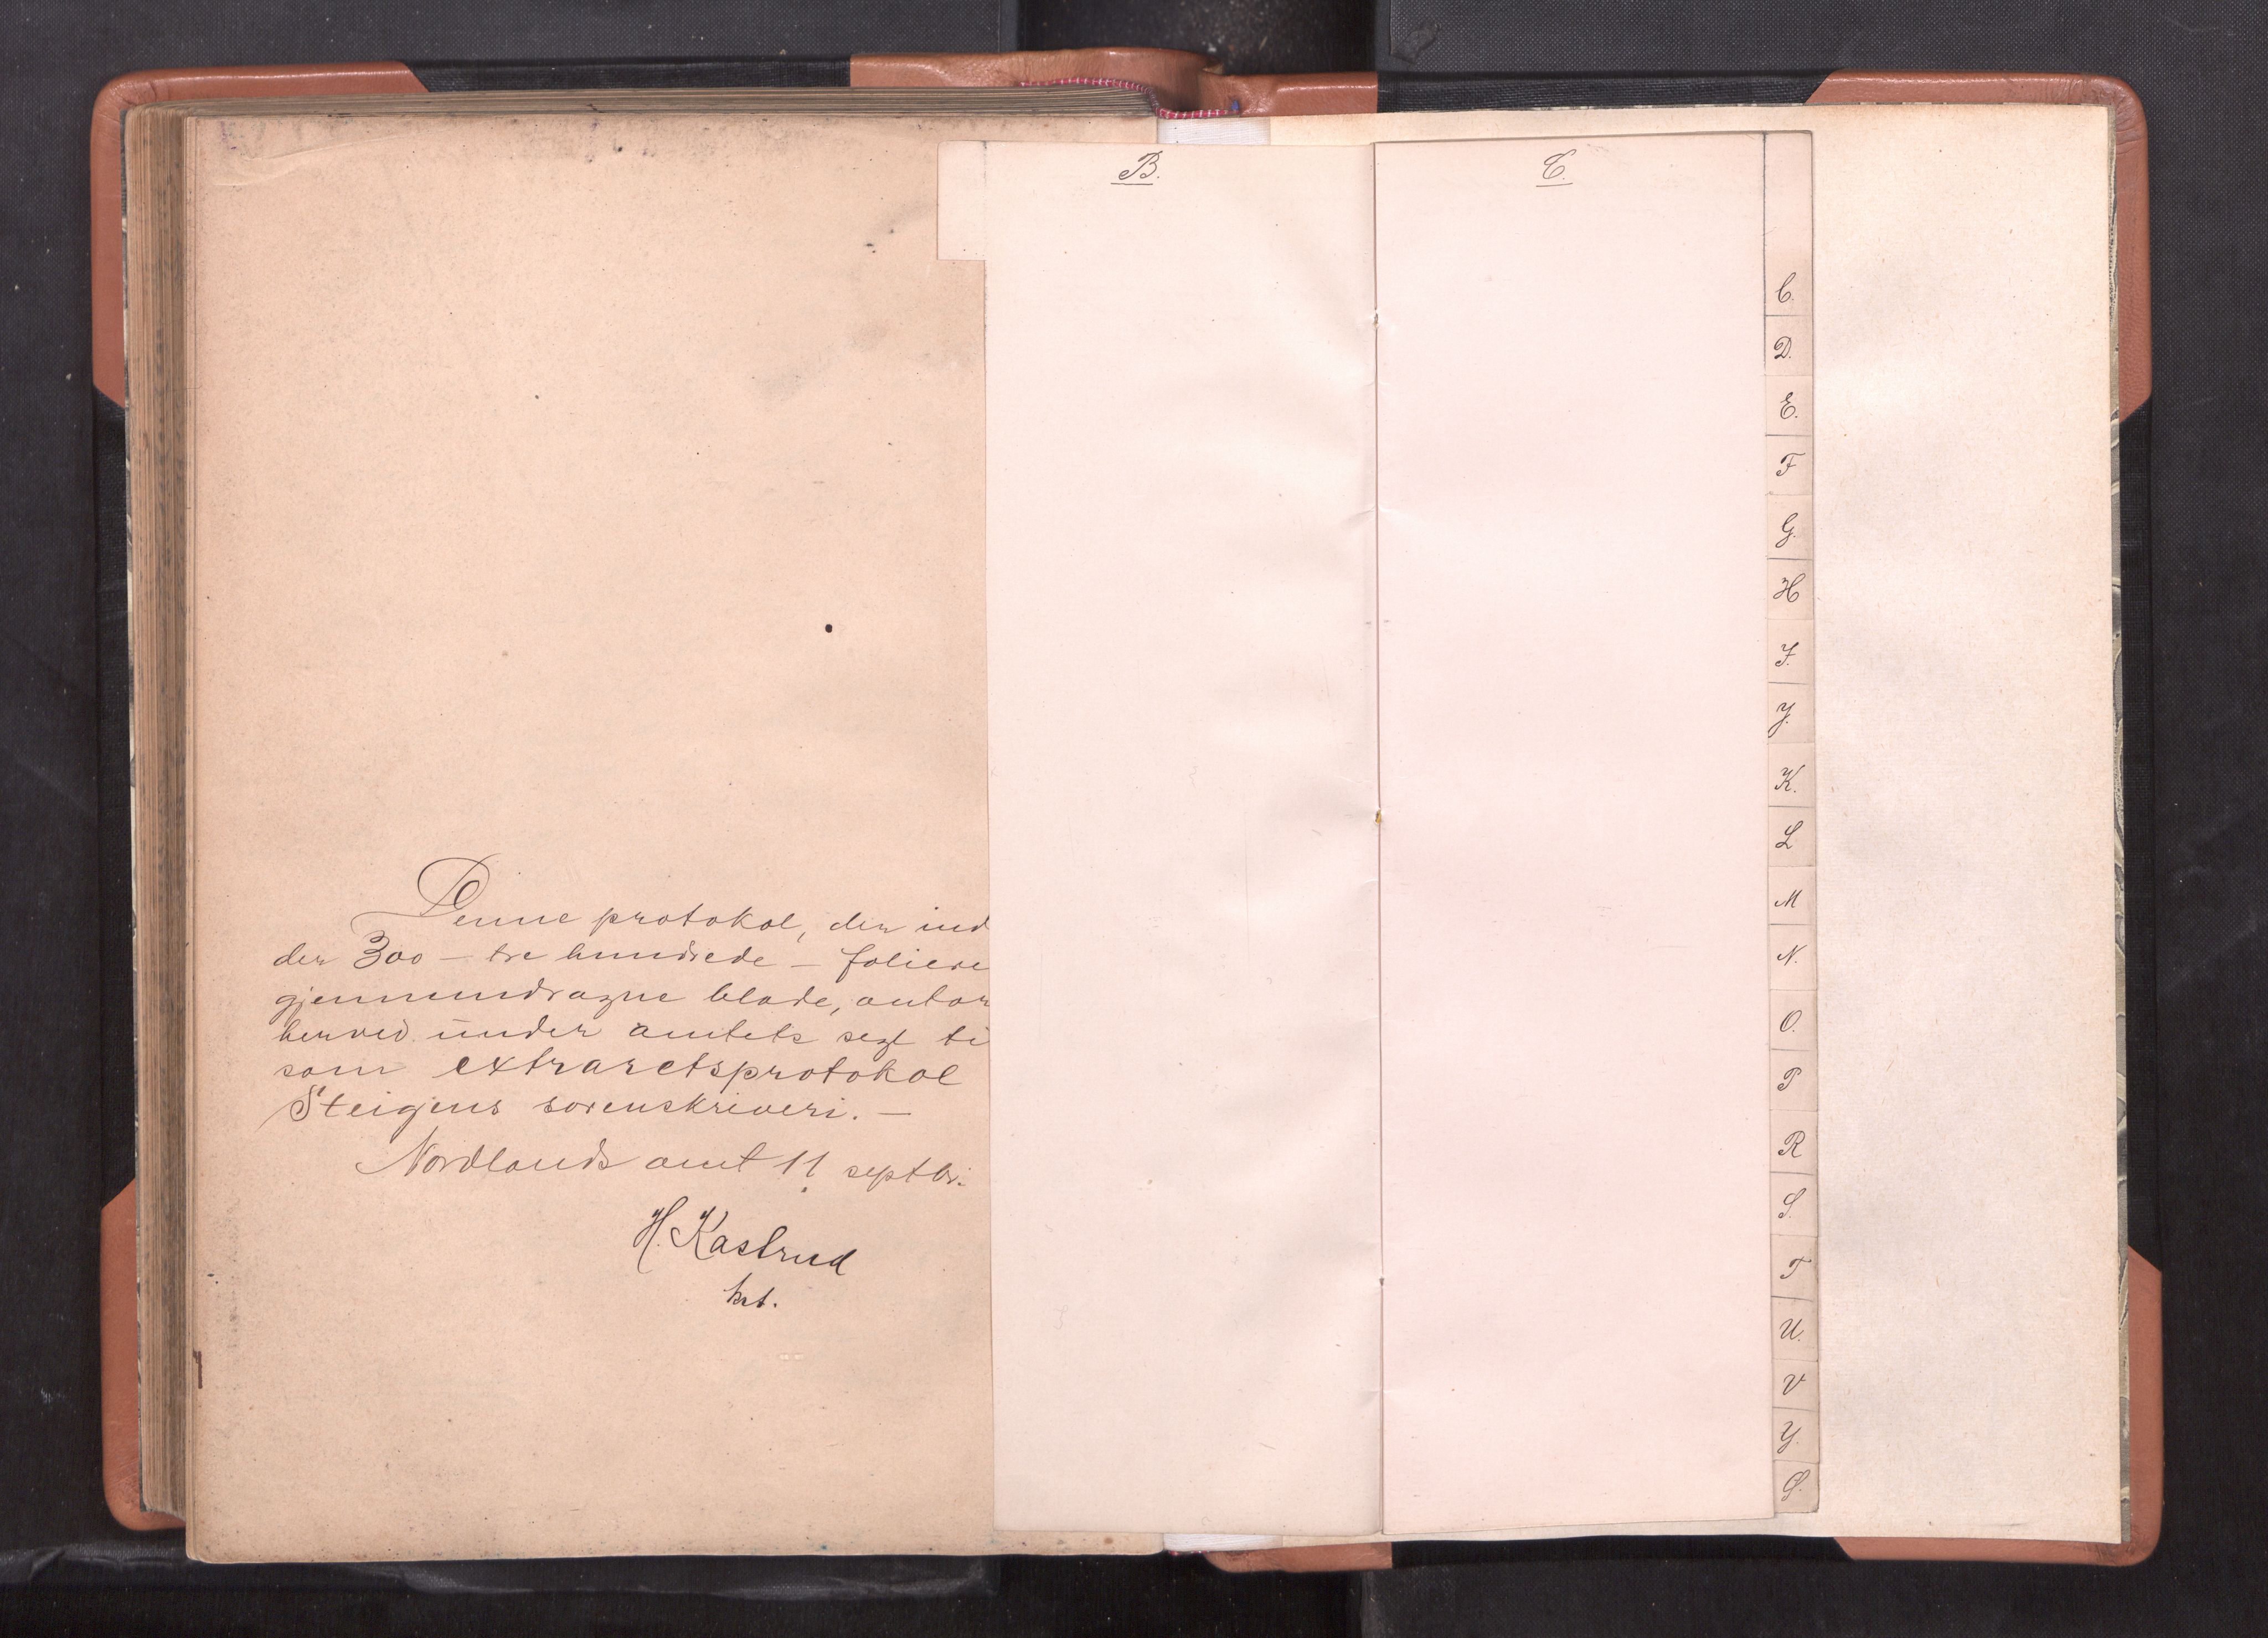 Denne protokol, der ind
der 300 – tre hundrede – foliere
gjennemdragne blade, autor
herved under amtets segl ti
som extraretsprotokol
Steigens sorenskriveri. –
Nordlands amt 11 septbr.
H. Kastrud
kst.
B.
C.
C.
D.
E.
F
G.
H
I.
J.
K.
L
M
N.
O.
P
R
S.
T
U.
V
Y.